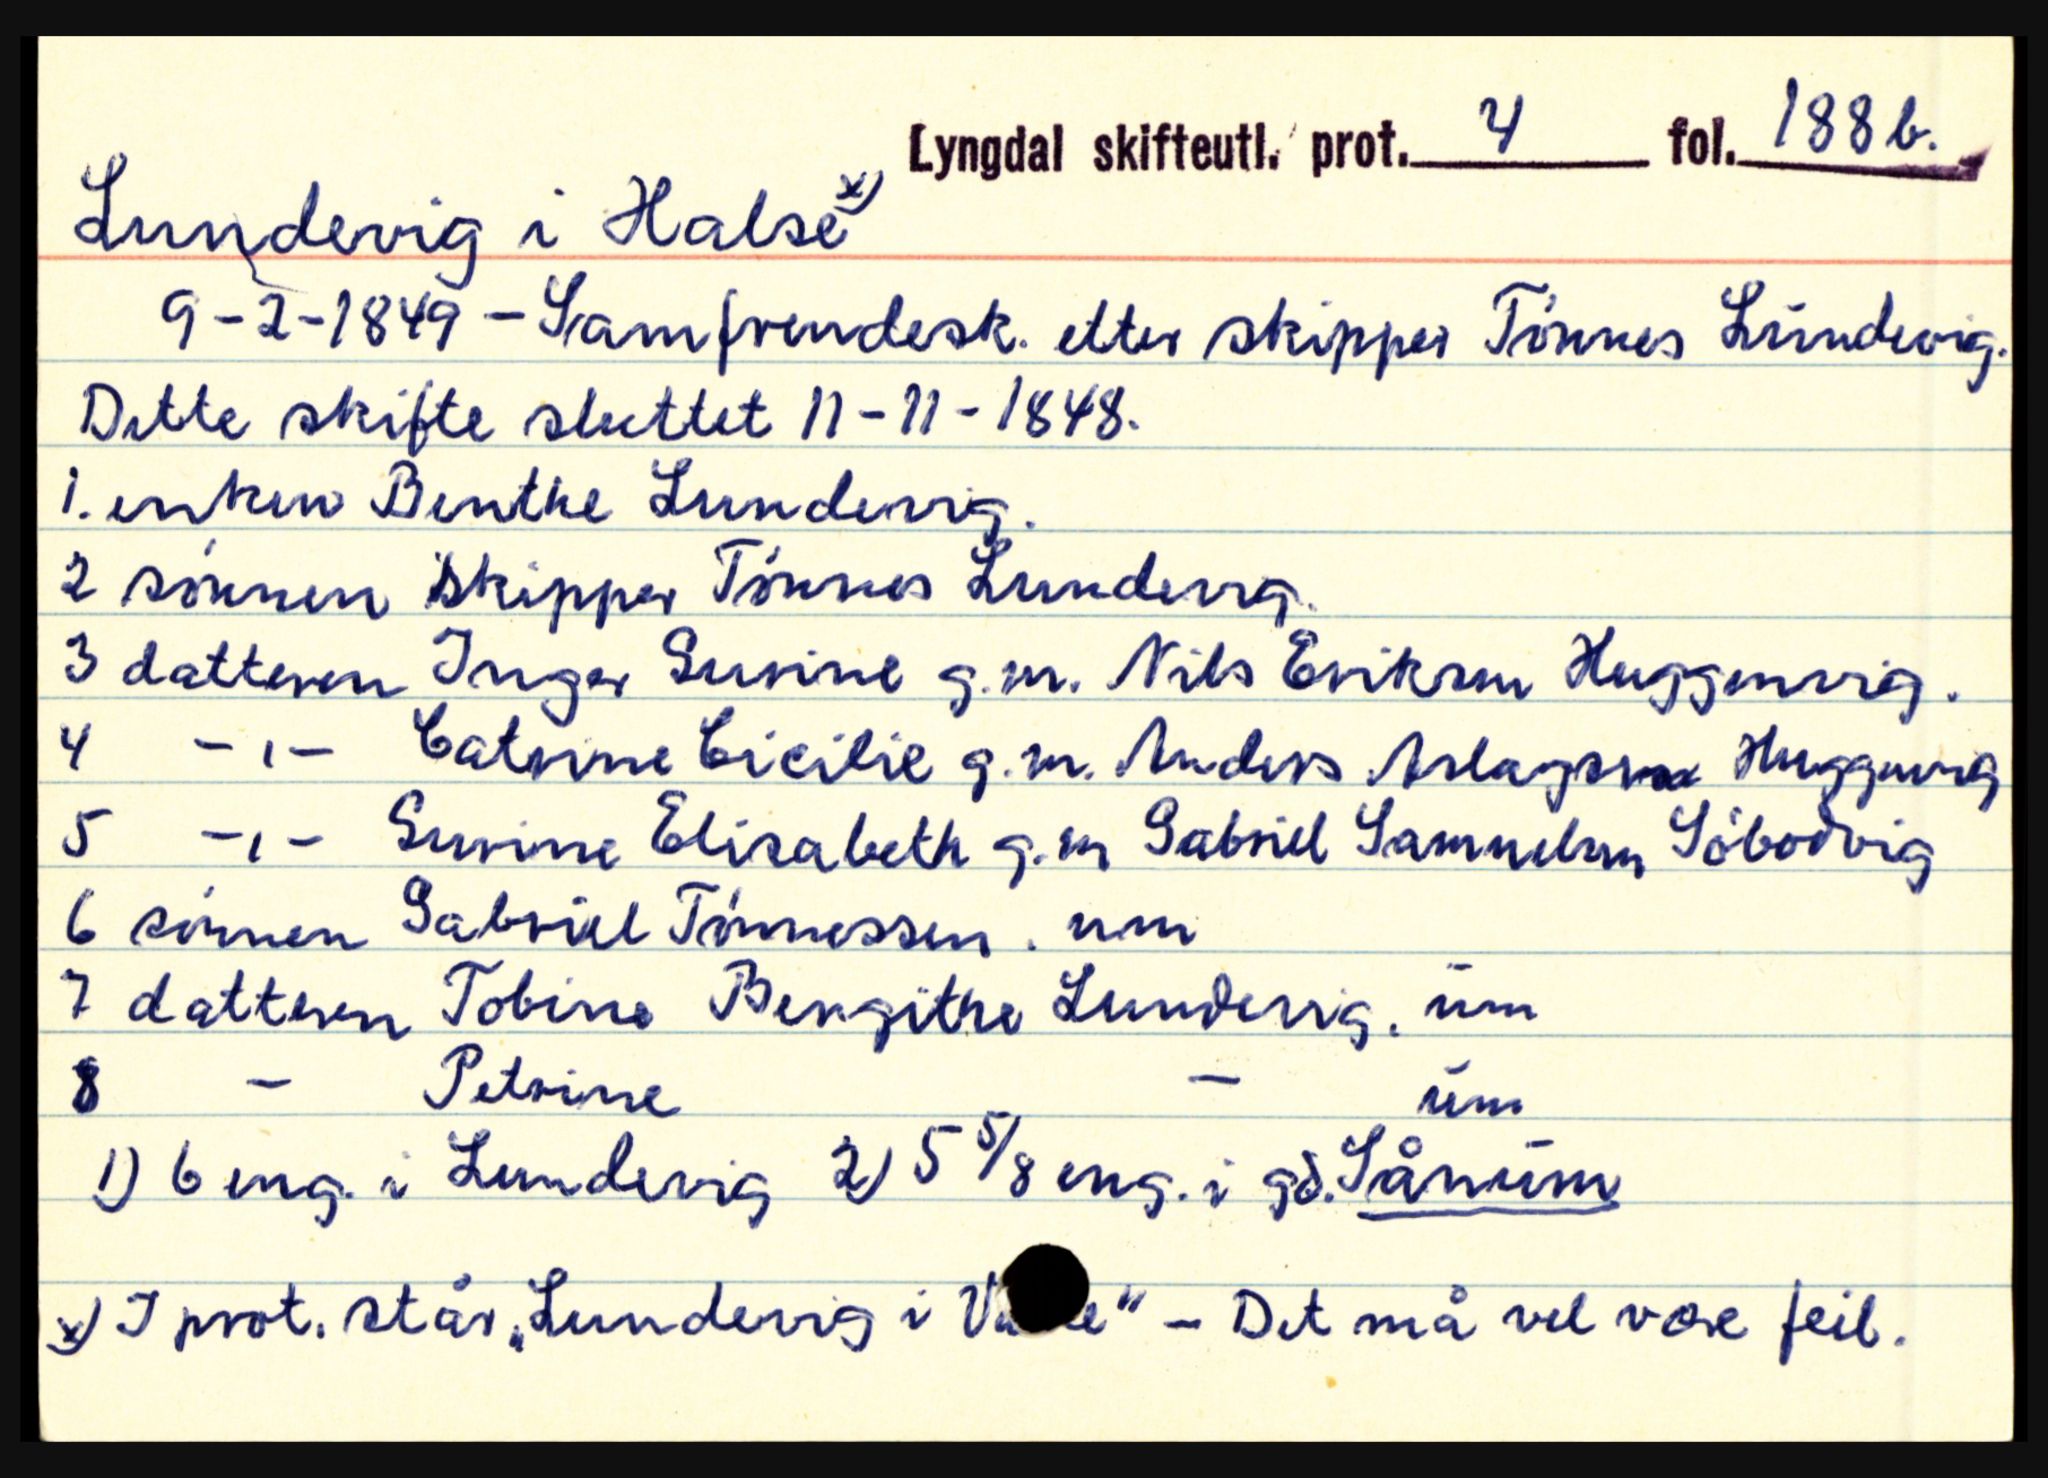 Lyngdal skifteutl. prot. 4 fol. 188 b.
Lundevig i Halse x)
9-2-1849 - Samfrendesk. etter skipper Tönnes Lundevig.
Dette skifte sluttet 11-11-1848.
1. enken Benthe Lundevig.
2 sönnen skipper Tönnes Lundevig.
3 datteren Inger Surine g.m. Nils Eriksen Huggenvig.
4 -"- Catrine Cicilie g.m. Anders Aslagsen Huggenvig
5 -"- Surine Elisabeth g.m Gabriel Samuelsen Söbodvig
6 sönnen Gabriel Tönnessen. um
7 datteren Tobine Bergithe Lundevig. um
8 - Petrine - um
1) 6 eng. i Lundevig 2) 5 5/8 eng. i gd. Sånum
x) I prot. står „Lundevig i" - Det må vel være feil.